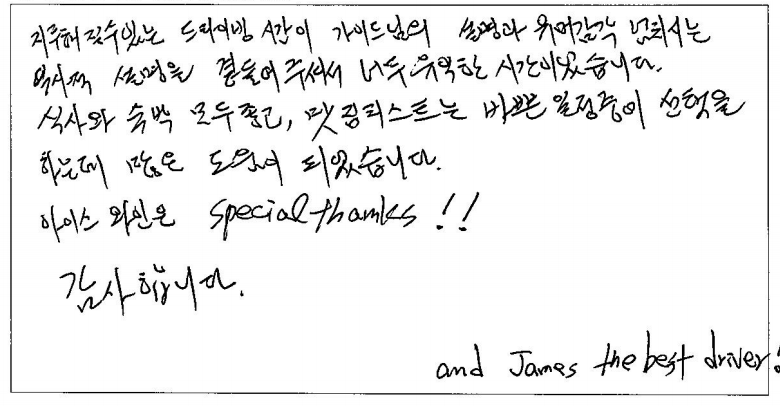 지루해 질수있는 드라이빙 시간이 가이드님의 설명과 유머감각 넘치시는
역사적 설명을 곁들여주셔서 너무 유익한 시간이었습니다.
식사와 숙박 모두 좋고, 맛집리스트는 바쁜 일정중이 선택을
하는데 많은 도움이 되었습니다.
아이스 와인은 special thanks !!
감사합니다.
and James the best driver!